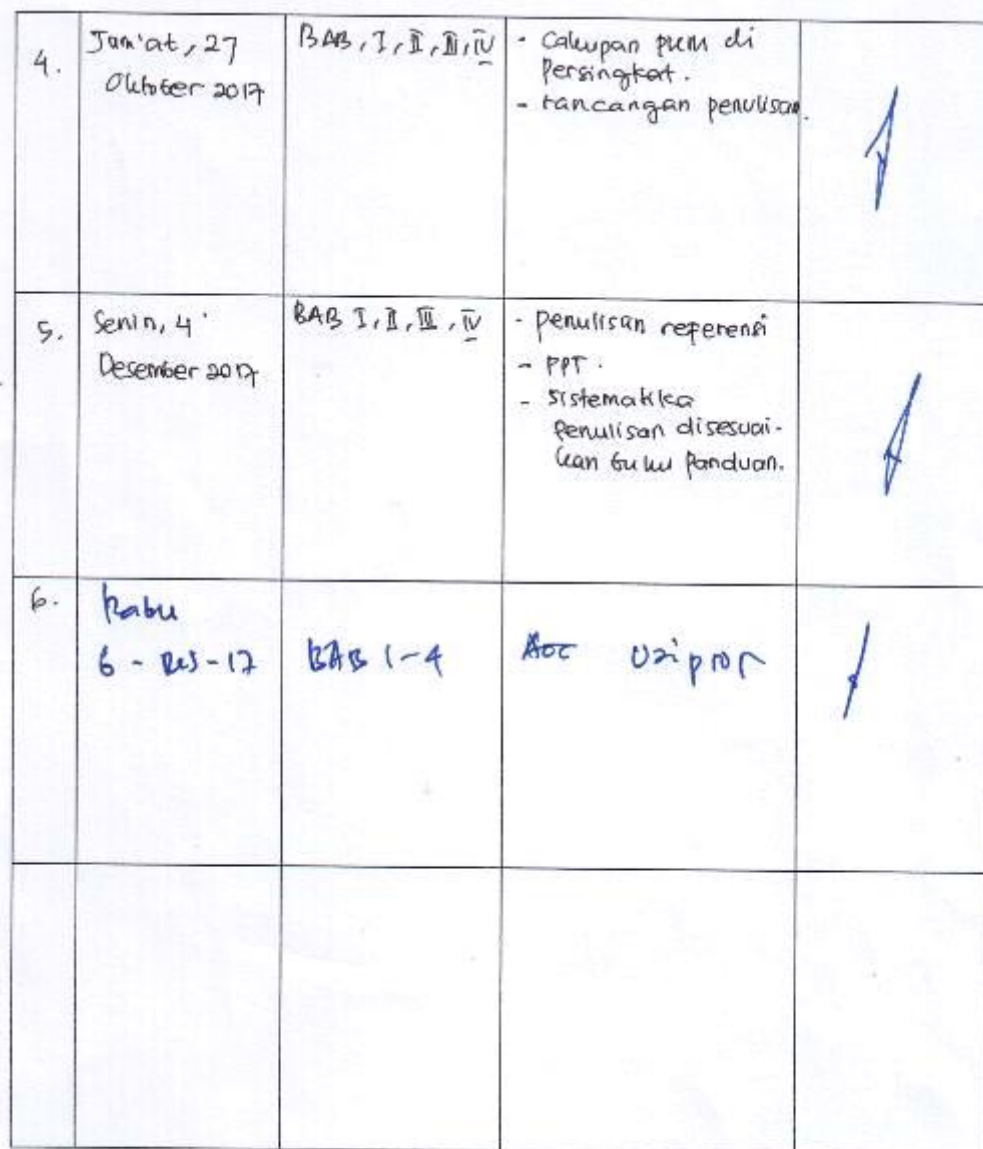 4.
Jum'at, 27
Oktober 2017
BAB, I, II, III, IV
- Cakupan PKM di
Persingkat.
- rancangan penulisan.
5.
Senin, 4
Desember 2017
BAB I, II, III, IV
- penulisan referensi
- PPT.
- Sistematika
penulisan disesuai-
kan buku Panduan.
6.
Rabu
6 - Des - 17
BAB 1-4
Acc Uji prop